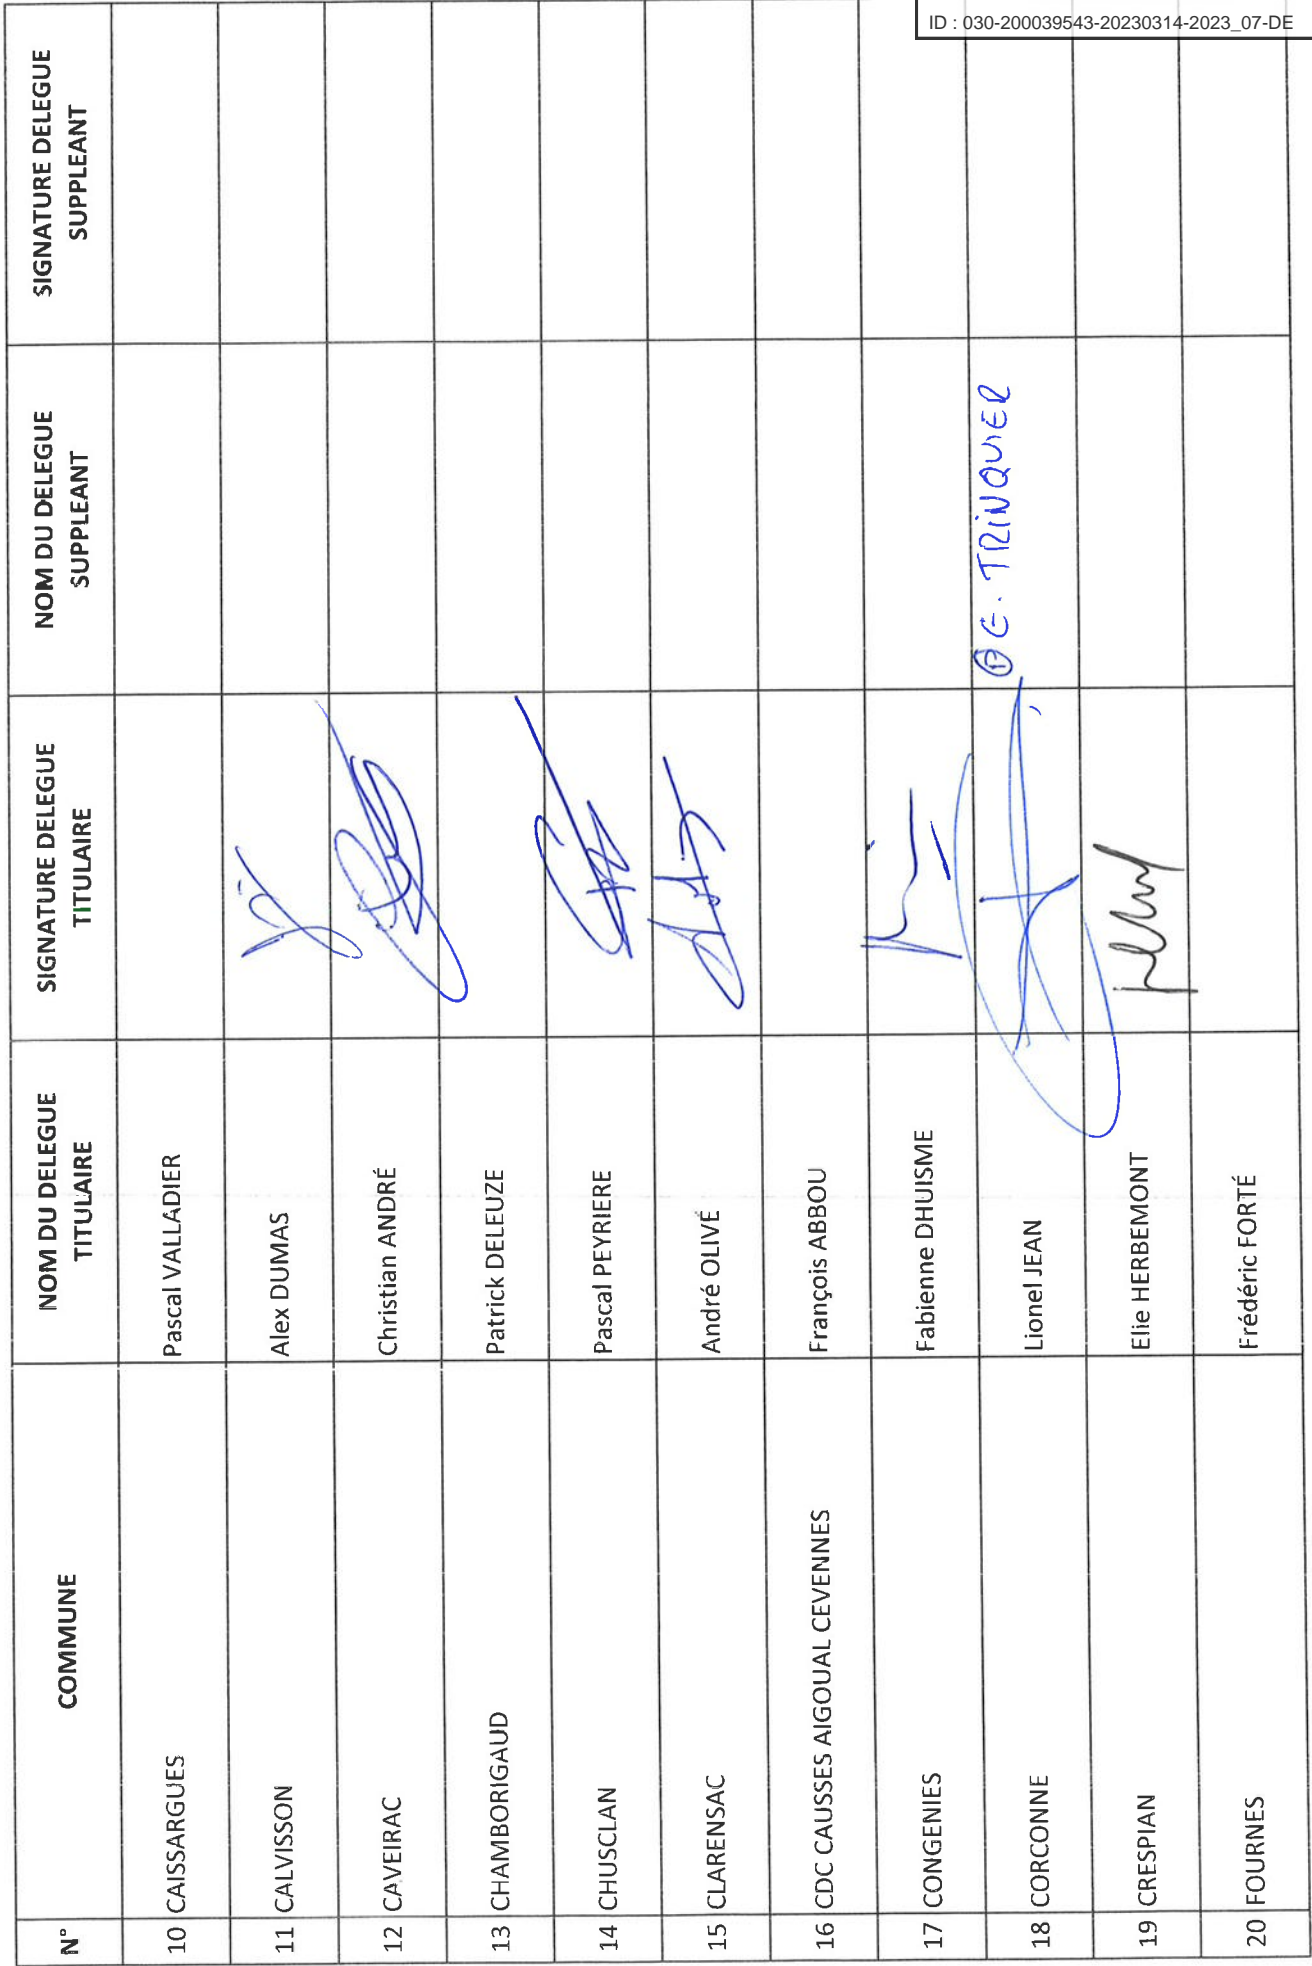 ID : 030-200039543-20230314-2023_07-DE
N° COMMUNE NOM DU DELEGUE TITULAIRE SIGNATURE DELEGUE TITULAIRE NOM DU DELEGUE SUPPLEANT SIGNATURE DELEGUE SUPPLEANT
10 CAISSARGUES Pascal VALLADIER
11 CALVISSON Alex DUMAS
12 CAVEIRAC Christian ANDRÉ
13 CHAMBORIGAUD Patrick DELEUZE
14 CHUSCLAN Pascal PEYRIERE
15 CLARENSAC André OLIVÉ
16 CDC CAUSSES AIGOUAL CEVENNES François ABBOU
17 CONGENIES Fabienne DHUISME
18 CORCONNE Lionel JEAN TRINQUIER
19 CRESPIAN Elie HERBEMONT
20 FOURNES Frédéric FORTÉ